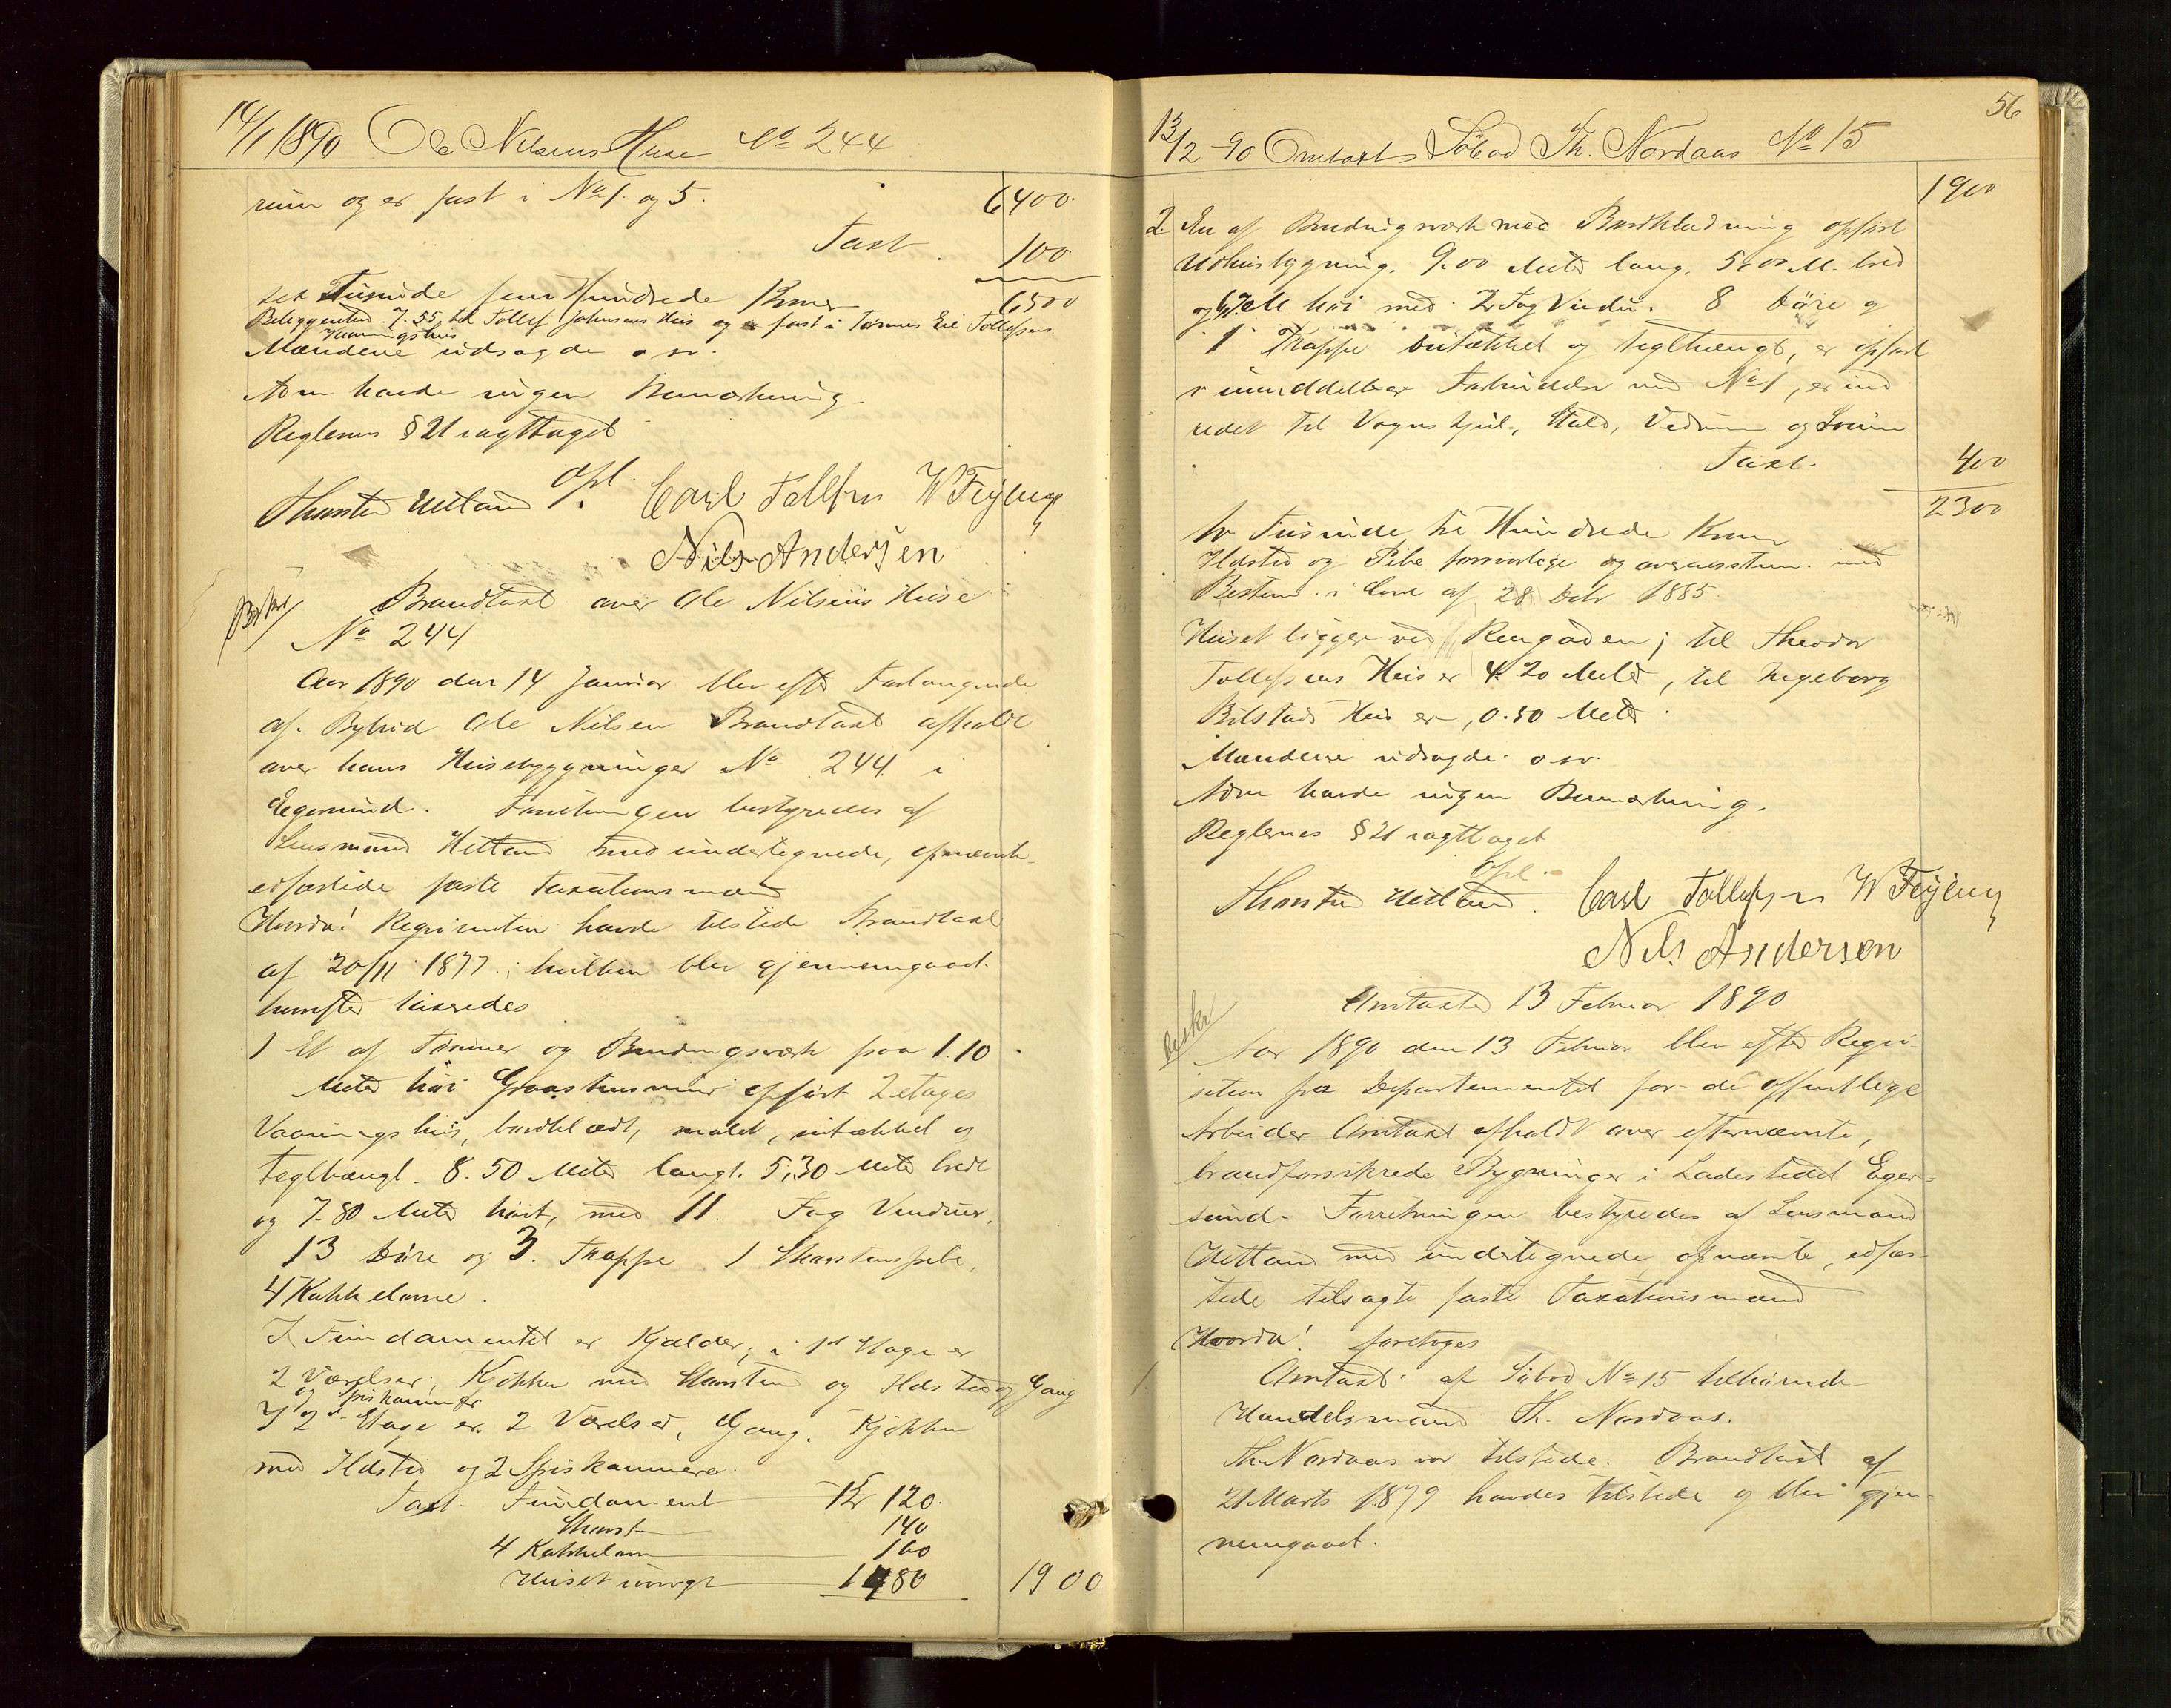 14/1 1890 Ole Nilsens Huse No 244
rum og er fast i No 1. og 5. 6400.
Taxt. 100
sex Tusinde fem Hundrede Kroner 6500
Beliggenhed 7.55 til Tollef Johnsens Hus og er fast i Tønnes Eil Tollefsens
Vaaningshus
Mændene udsagde osv.
Adm havde ingen Bemærkning.
Reglernes § 21 iagttaget
Opl.
Thorsten Hetland Carl Tollefsen W Feyling
Nils Andersen
Beskr
Brandtaxt over Ole Nilsens Huse
No 244
Aar 1890 den 14 Januar blev efter Forlangende
af Bybud Ole Nilsen Brandtaxt afholdt
over hans Husebygninger No 244 i
Egersund. Forretningen bestyredes af
Lensmand Hetland med undertegnede, opnævnte
edfæstede faste Taxationsmænd
Hvorda! Regvirenten havde tilstede Brandtaxt
af 20/11 1877; hvilken blev gjennemgaaet.
hvorefter taxeredes
1 Et af Tømmer og Bindingsværk paa 1.10
Meter høi Graastensmur opført 2 etages
Vaaningshus, bordklædt, malet, sutækket og
teglhængt. 8.50 Meter langt. 5,30 Meter bredt
og 7.80 Meter høit, med 11. Fag Vinduer,
13 Døre og 3. Trappe 1 Skorstenspibe,
4 Kakkelovne.
I Fundamentet er Kjælder, i 1st Etage er
2 Værelser, Kjøkken med Skorsten og Ildsted og Gang
og Spiskammer
I 2d Etage er 2 Værelser, Gang, Kjøkken
med Ildsted og 2 Spiskammere.
Taxt. Fundament Kr 120.
Skorst 140
4 Kakkelovn 160
Huset iøvrigt 1480 1900
56
13/2 -90 Omtaxt Søbod Th. Nordaas No 15
1900
2 En af Bindingsværk med Bordklædning opført
Udhusbygning. 9.00 Meter lang. 5.00 M. bred
og M høi med 2 Fag Vindu. 8 Døre og
1 Trappe sutækket og teglhængt, er opført
i umiddelbar Forbindelse med No 1, er ind
redet til Vognskjul, Stald, Vedrum og
Taxt. 400
2300
to Tusinde tre Hundrede Kroner
Ildsted og Pibe forsvarlige og overensstem. med
Bestem. i Lov af 28 Debr 1885.
Huset ligger ved Rengaden; til Theodor
Tollefsens Hus er 4.20 Meter, til Ingeborg
Bilstads Hus er 0.50 Meter.
Mændene udsagde osv.
Adm havde ingen Bemærkning.
Reglernes § 21 iagttaget
Opl.
Thorsten Hetland. Carl Tollefsen W Feyling
Nils Andersen
Omtaxter 13 Februar 1890
Beskr
Aar 1890 den 13 Februar blev efter Regvi-
sition fra Departementet for de offentlige
Arbeider Omtaxt afholdt over efternævnte,
brandforsikrede Bygninger i Ladestedet Eger-
sund. Forretningen bestyredes af Lensmand
Hetland med undertegnede opnævnte, edfæs-
tede tilsagte faste Taxationsmænd
Hvorda! foretoges
1. Omtaxt af Søbod No 15 tilhørende
Handelsmand Th. Nordaas.
Th. Nordaas var tilstede. Brandtaxt af
21 Marts 1879 havdes tilstede og blev gjen-
nemgaaet.